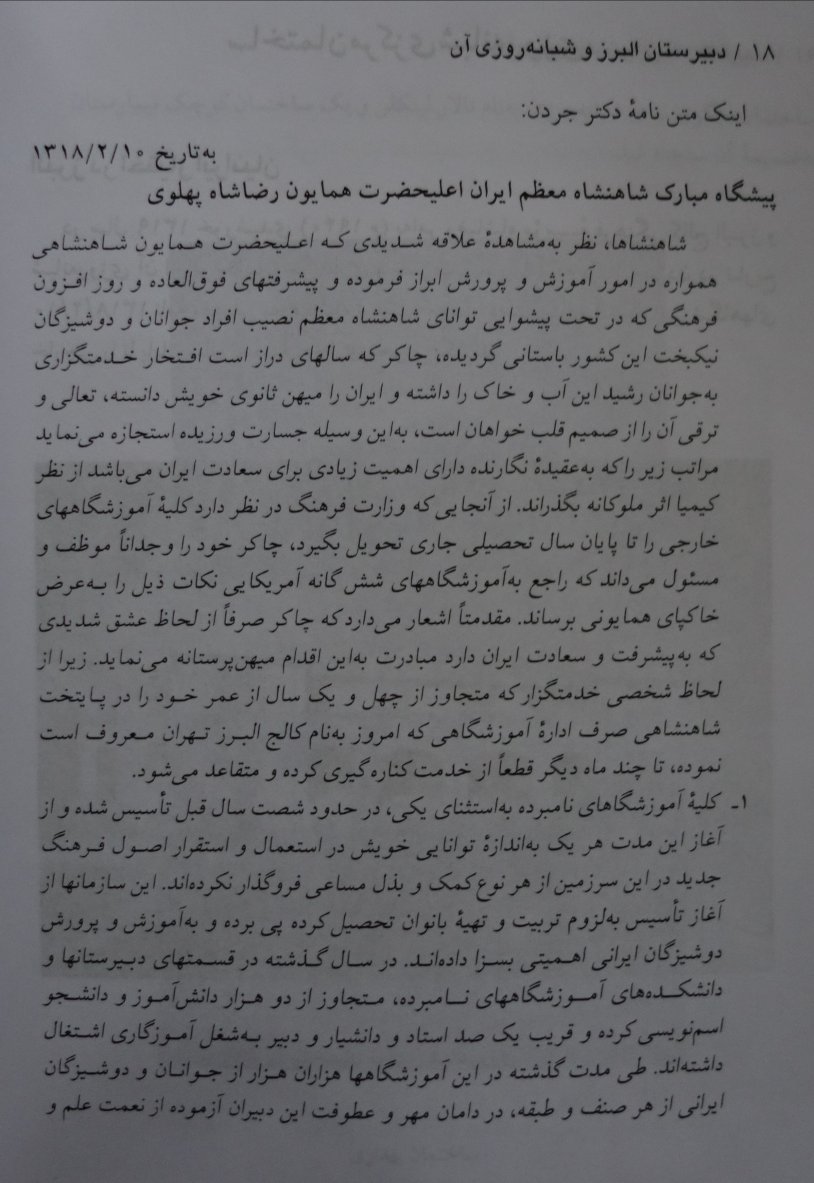 ۱۸ / دبیرستان البرز و شبانه‌روزی آن
اینک متن نامهٔ دکتر جردن:
به‌تاریخ ۱۳۱۸/۲/۱۰
پیشگاه مبارک شاهنشاه معظم ایران اعلیحضرت همایون رضاشاه پهلوی
شاهنشاها، نظر به‌مشاهدهٔ علاقه شدیدی که اعلیحضرت همایون شاهنشاهی
همواره در امور آموزش و پرورش ابراز فرموده و پیشرفتهای فوق‌العاده و روز افزون
فرهنگی که در تحت پیشوایی توانای شاهنشاه معظم نصیب افراد جوانان و دوشیزگان
نیکبخت این کشور باستانی گردیده، چاکر که سالهای دراز است افتخار خدمتگزاری
به‌جوانان رشید این آب و خاک را داشته و ایران را میهن ثانوی خویش دانسته، تعالی و
ترقی آن را از صمیم قلب خواهان است، به‌این وسیله جسارت ورزیده استجازه می‌نماید
مراتب زیر را که به‌عقیدهٔ نگارنده دارای اهمیت زیادی برای سعادت ایران می‌باشد از نظر
کیمیا اثر ملوکانه بگذراند. از آنجایی که وزارت فرهنگ در نظر دارد کلیهٔ آموزشگاههای
خارجی را تا پایان سال تحصیلی جاری تحویل بگیرد، چاکر خود را وجداناً موظف و
مسئول می‌داند که راجع به‌آموزشگاههای شش گانه آمریکایی نکات ذیل را به‌عرض
خاکپای همایونی برساند. مقدمتاً اشعار می‌دارد که چاکر صرفاً از لحاظ عشق شدیدی
که به‌پیشرفت و سعادت ایران دارد مبادرت به‌این اقدام میهن‌پرستانه می‌نماید. زیرا از
لحاظ شخصی خدمتگزار که متجاوز از چهل و یک سال از عمر خود را در پایتخت
شاهنشاهی صرف ادارهٔ آموزشگاهی که امروز به‌نام کالج البرز تهران معروف است
نموده، تا چند ماه دیگر قطعاً از خدمت کناره‌گیری کرده و متقاعد می‌شود.
۱ـ کلیهٔ آموزشگاهای نامبرده به‌استثنای یکی، در حدود شصت سال قبل تأسیس شده و از
آغاز این مدت هر یک به‌اندازهٔ توانایی خویش در استعمال و استقرار اصول فرهنگ
جدید در این سرزمین از هر نوع کمک و بذل مساعی فروگذار نکرده‌اند. این سازمانها از
آغاز تأسیس به‌لزوم تربیت و تهیهٔ بانوان تحصیل کرده پی برده و به‌آموزش و پرورش
دوشیزگان ایرانی اهمیتی بسزا داده‌اند. در سال گذشته در قسمتهای دبیرستانها و
دانشکده‌های آموزشگاههای نامبرده، متجاوز از دو هزار دانش‌آموز و دانشجو
اسم‌نویسی کرده و قریب یک صد استاد و دانشیار و دبیر به‌شغل آموزگاری اشتغال
داشته‌اند. طی مدت گذشته در این آموزشگاهها هزاران هزار از جوانان و دوشیزگان
ایرانی از هر صنف و طبقه، در دامان مهر و عطوفت این دبیران آزموده از نعمت علم و